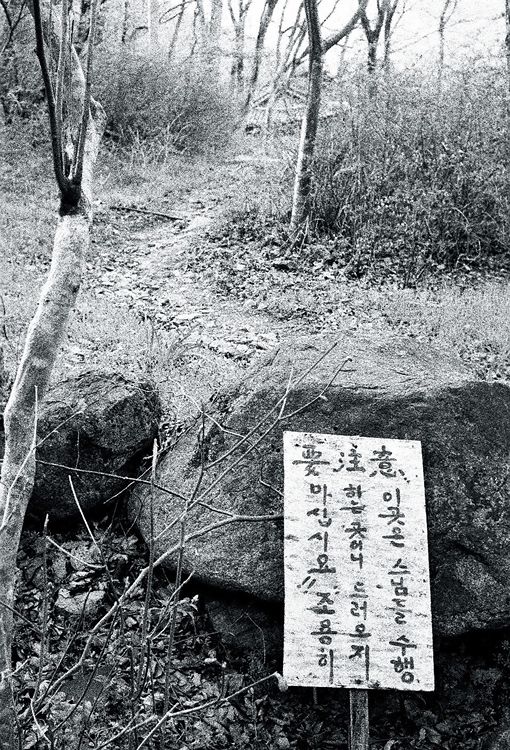 要注意
이곳은 스님들 수행
하는 곳이니 드러오지
마십시요 〃 조용히